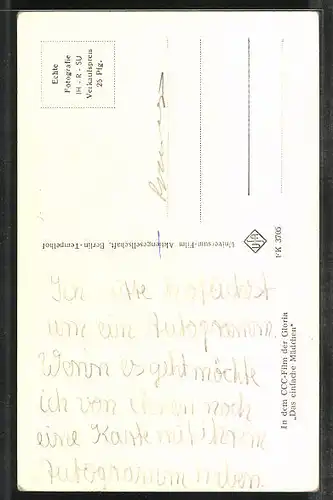 Echte
Fotografie
IH - R - SU
Verkaufspreis
25 Pfg.
Universum-Film Aktiengesellschaft, Berlin-Tempelhof
UFA
FK 3705
In dem CCC-Film der Gloria
„Das einfache Mädchen"
Ich bitte höflichst
um ein Autogramm.
Wenn es geht möchte
ich von ihnen noch
eine Karte mit ihrem
Autogramm haben.